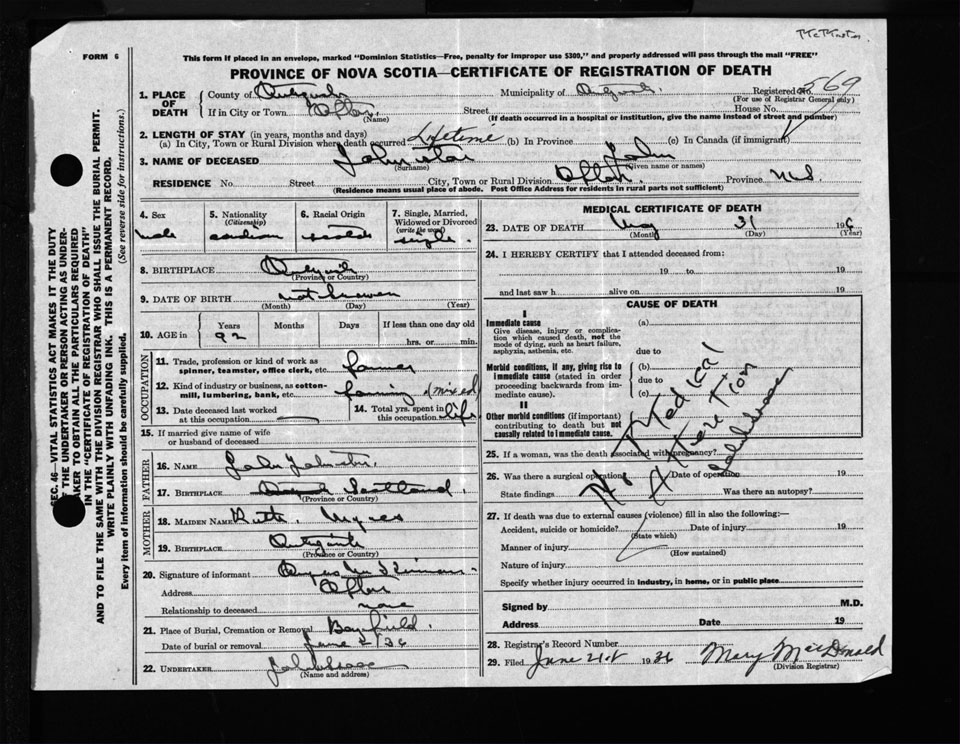 FORM 6
This form if placed in an envelope, marked "Dominion Statistics—Free, penalty for improper use $300," and properly addressed will pass through the mail "FREE"
PROVINCE OF NOVA SCOTIA—CERTIFICATE OF REGISTRATION OF DEATH
SEC. 46—VITAL STATISTICS ACT MAKES IT THE DUTY
OF THE UNDERTAKER OR PERSON ACTING AS UNDER-
TAKER TO OBTAIN ALL THE PARTICULARS REQUIRED
IN THE "CERTIFICATE OF REGISTRATION OF DEATH"
AND TO FILE THE SAME WITH THE DIVISION REGISTRAR WHO SHALL ISSUE THE BURIAL PERMIT.
WRITE PLAINLY WITH UNFADING INK. THIS IS A PERMANENT RECORD.
Every item of information should be carefully supplied. (See reverse side for instructions.)
1. PLACE OF DEATH
County of Municipality of Registered No. 569
(For use of Registrar General only)
If in City or Town Street House No.
(Name) (If death occurred in a hospital or institution, give the name instead of street and number)
2. LENGTH OF STAY (in years, months and days)
(a) In City, Town or Rural Division where death occurred Lifetime (b) In Province (c) In Canada (if immigrant)
3. NAME OF DECEASED Johnston John
(Surname) (Given name or names)
RESIDENCE No. Street City, Town or Rural Division Province N.S.
(Residence means usual place of abode. Post Office Address for residents in rural parts not sufficient)
4. Sex male
5. Nationality (Citizenship) canadian
6. Racial Origin
7. Single, Married, Widowed or Divorced (write the word) single
8. BIRTHPLACE
(Province or Country)
9. DATE OF BIRTH not known
(Month) (Day) (Year)
10. AGE in Years Months Days If less than one day old
92 hrs. or min.
OCCUPATION
11. Trade, profession or kind of work as spinner, teamster, office clerk, etc. farmer
12. Kind of industry or business, as cotton-mill, lumbering, bank, etc. farming (mixed)
13. Date deceased last worked at this occupation
14. Total yrs. spent in this occupation life
15. If married give name of wife or husband of deceased
FATHER
16. NAME John Johnston
17. BIRTHPLACE Scotland
(Province or Country)
MOTHER
18. MAIDEN NAME Ruth
19. BIRTHPLACE Antigonish
(Province or Country)
20. Signature of informant
Address
Relationship to deceased none
21. Place of Burial, Cremation or Removal Bayfield
Date of burial or removal June 2/36
22. UNDERTAKER
(Name and address)
MEDICAL CERTIFICATE OF DEATH
23. DATE OF DEATH May 31 1936
(Month) (Day) (Year)
24. I HEREBY CERTIFY that I attended deceased from:
19 to 19
and last saw h alive on 19
CAUSE OF DEATH
I
Immediate cause (a)
Give disease, injury or complication which caused death, not the mode of dying, such as heart failure, asphyxia, asthenia, etc.
due to
Morbid conditions, if any, giving rise to immediate cause (stated in order proceeding backwards from immediate cause).
(b)
due to
(c)
II
Other morbid conditions (important) contributing to death but not causally related to immediate cause.
No Medical
Attention
25. If a woman, was the death associated with pregnancy?
26. Was there a surgical operation? Date of operation 19
State findings Was there an autopsy?
27. If death was due to external causes (violence) fill in also the following:—
Accident, suicide or homicide? Date of injury 19
(State which)
Manner of injury
(How sustained)
Nature of injury
Specify whether injury occurred in industry, in home, or in public place
Signed by M.D.
Address Date 19
28. Registrar's Record Number
29. Filed June 21st 1936 Mary MacDonald
(Division Registrar)